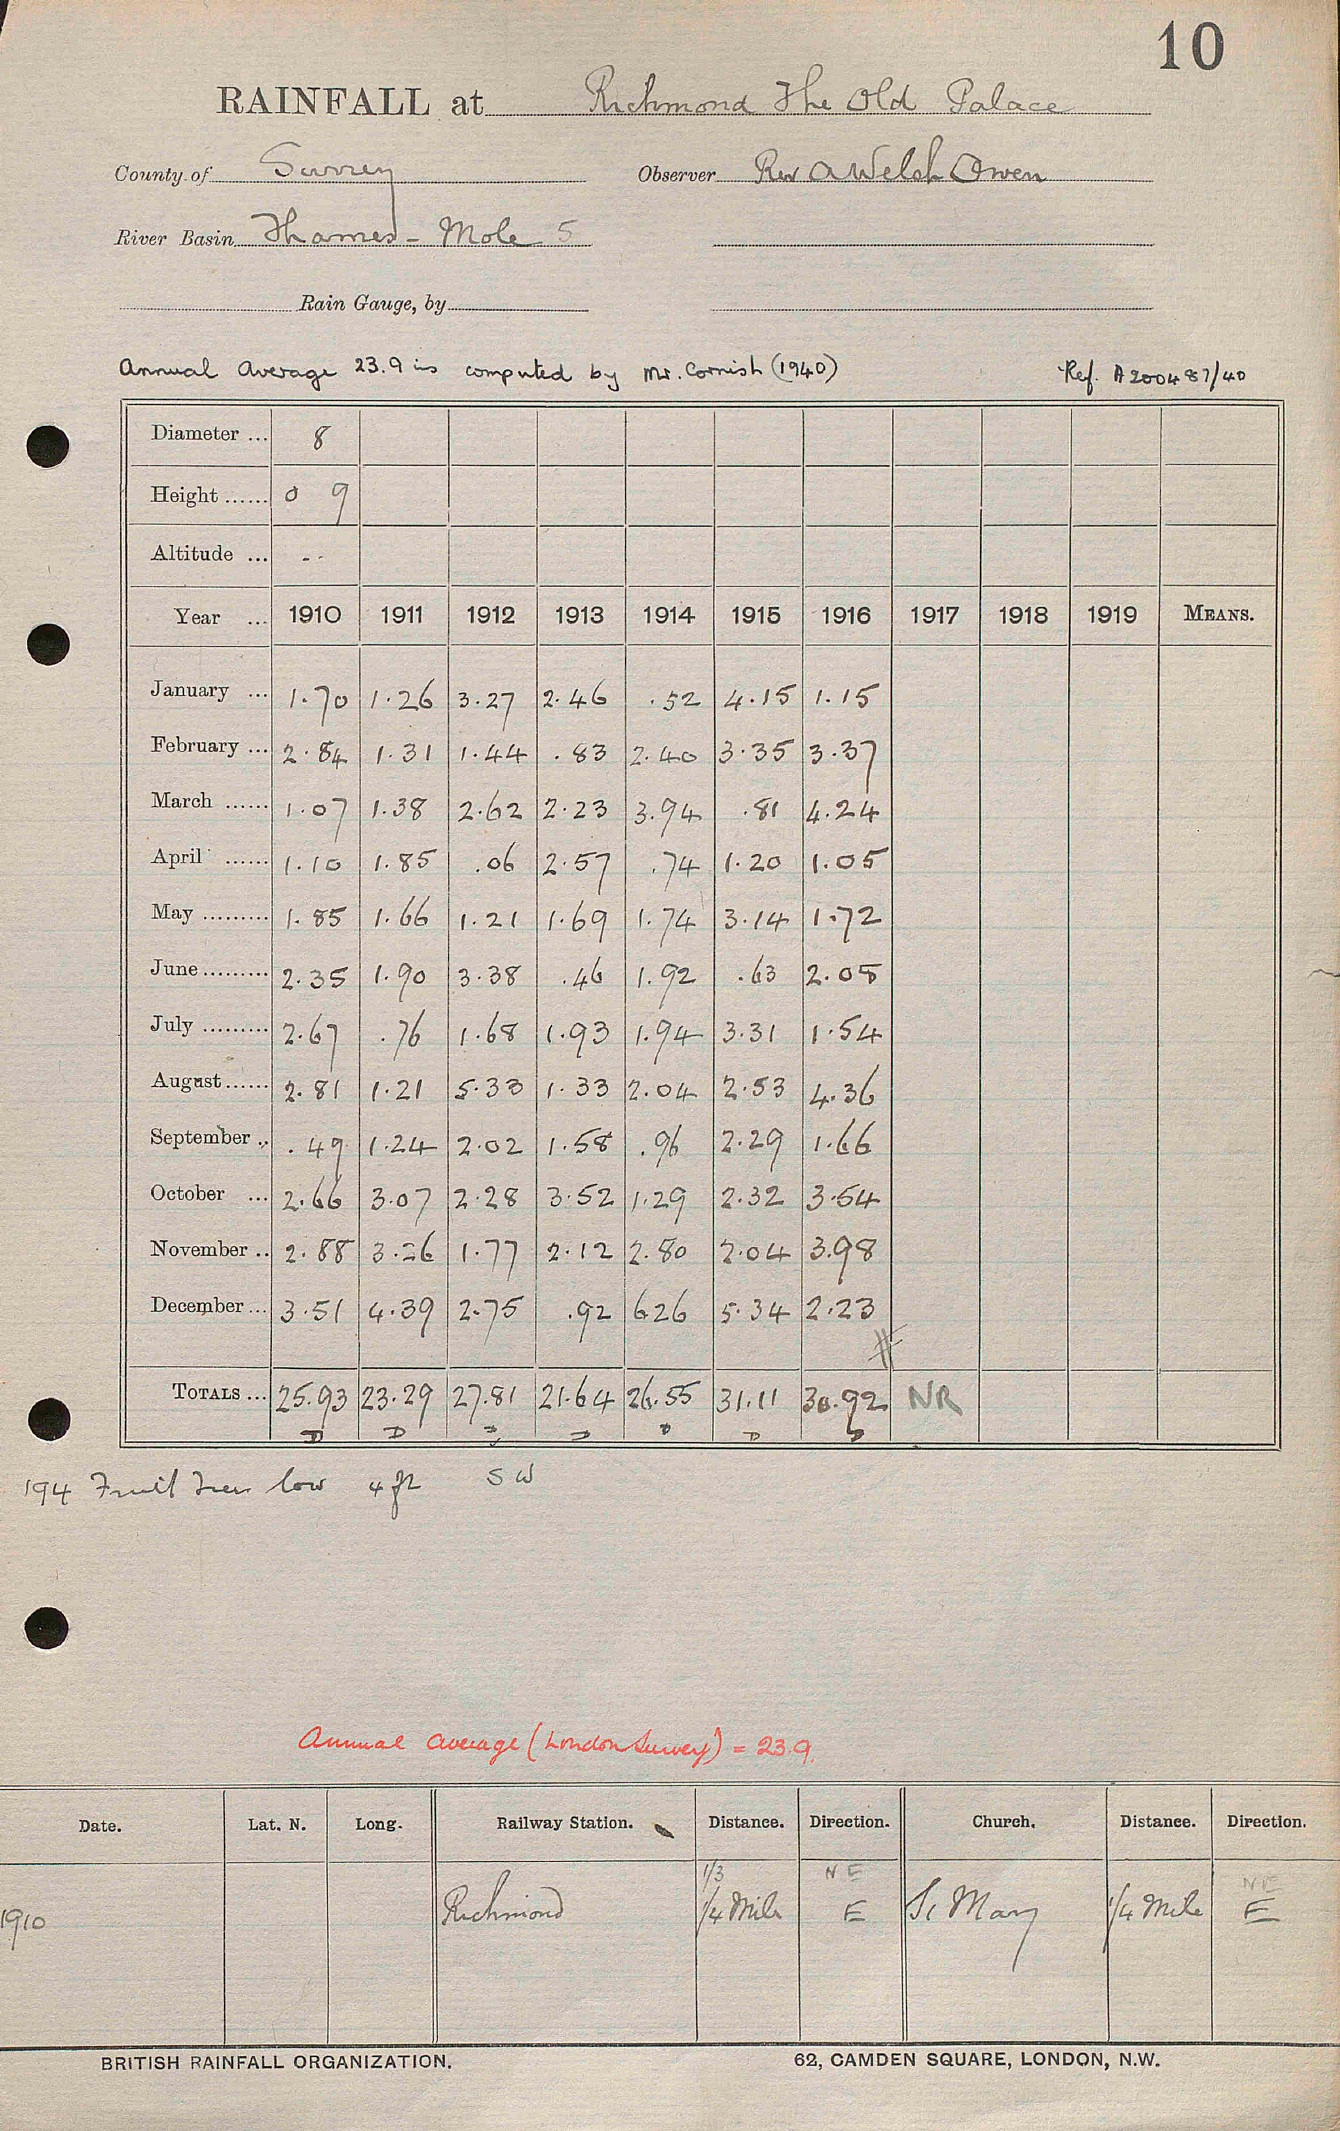 10
RAINFALL at Richmond The Old Palace
County of Surrey Observer Rev A Welsh Owen
River Basin Thames - Mole 5
Rain Gauge, by
Annual Average 23.9 is computed by Mr. Cornish (1940) Ref. A200487/40
Diameter ... 8
Height ...... 0 9
Altitude ... --
Year ... 1910 1911 1912 1913 1914 1915 1916 1917 1918 1919 MEANS.
January ... 1.70 1.26 3.27 2.46 .52 4.15 1.15
February ... 2.84 1.31 1.44 .83 2.40 3.35 3.37
March ...... 1.07 1.38 2.62 2.23 3.94 .81 4.24
April ...... 1.10 1.85 .06 2.57 .74 1.20 1.05
May ......... 1.85 1.66 1.21 1.69 1.74 3.14 1.72
June ......... 2.35 1.90 3.38 .46 1.92 .63 2.08
July ......... 2.67 .76 1.68 1.93 1.94 3.31 1.54
August ...... 2.81 1.21 5.33 1.33 2.04 2.53 4.36
September .. .49 1.24 2.02 1.58 .96 2.29 1.66
October ... 2.66 3.07 2.28 3.52 1.29 2.32 3.54
November .. 2.88 3.26 1.77 2.12 2.80 2.04 3.98
December ... 3.51 4.39 2.75 .92 6.26 5.34 2.23
#
TOTALS ... 25.93 23.29 27.81 21.64 26.55 31.11 30.92 NR
D D D D D D D
194 Fruit Trees low 4 ft SW
Annual average (London Survey) = 23.9.
Date. Lat. N. Long. Railway Station. Distance. Direction. Church. Distance. Direction.
1/3 NE NE
1910 Richmond 1/4 Mile E St Mary 1/4 Mile E
BRITISH RAINFALL ORGANIZATION. 62, CAMDEN SQUARE, LONDON, N.W.